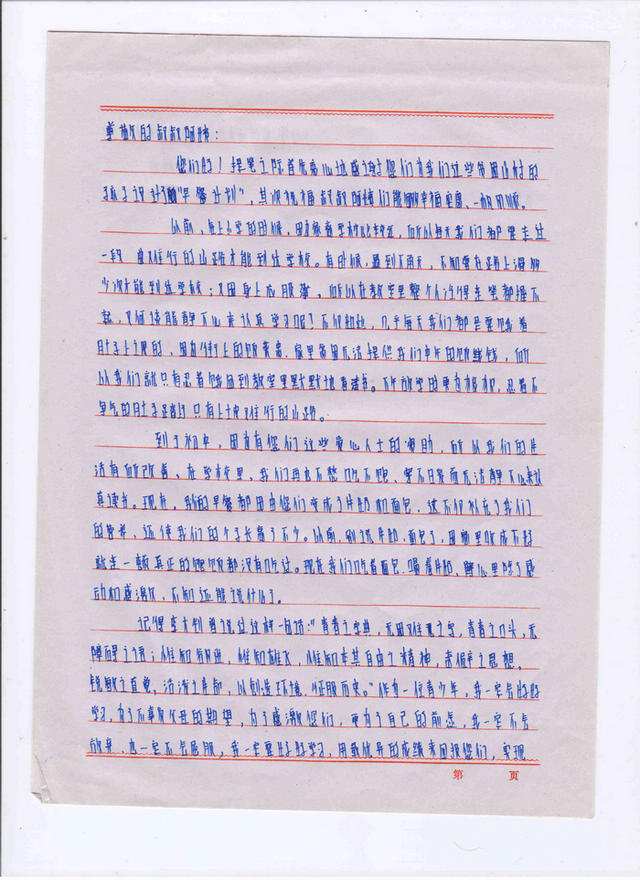 尊敬的叔叔阿姨:
您们好!提笔之际首先衷心地感谢您们为我们这些贫困山村的
孩子设计了"早餐计划",其次祝福叔叔阿姨们能够幸福安康、一帆风顺。
以前,在上小学的时候,因为教育学校比较远,所以每天我们都要走过
一段 难行的山路才能到达学校。有时候,遇到下雨天,不知要在路上滑倒
少次才能到达学校;又因身上成服 ,所以在教室里整个人冷得连笔都握不
起,又何谈能静下心来认真学习呢?不仅如此,几乎每天我们都是要饿着
肚子上课的,因为街上的饭贵,家里贫困无法提供我们中午的饭钱,所
以我们就只有忍着饿回到教室里默默地看书。下午放学的更为模糊,忍着不
争气的肚子 只有上 难行的山路。
到了初中,因为有您们这些爱心人士的帮助,所以我们的生
活有所改善。在学校里,我们再也不愁吃不饱、穿不暖而无法静下心来认
真读书。现在,我的早餐都因由您们变成了牛奶和面包,这不仅补充了我们
的营养,还使我们的个子长高了不少。以前,别说牛奶、面包了,因为里收成不好
就连一顿真正的饱饭都没有吃过。现在我们吃着面包、喝着牛奶、 心里除了感
动和感激外,不知还能说什么了。
记得李大钊曾说过这样一句话:"青春之字典,无困难之字,青春之口头,无
障碍之语;惟知跃进,惟知雄飞,惟知本其自由之精神,奇僻之思想,
锐敏之直觉,活泼之生命,以创造环境,征服历史。"作为一位青少年,我一定会好好
学习,为了不辜负父母的期望,为了感激您们,更为了自己的前途,我一定不会
放弃,也一定不会屈服,我一定要好好学习,用最优异的成绩来回报您们,实现
第 页